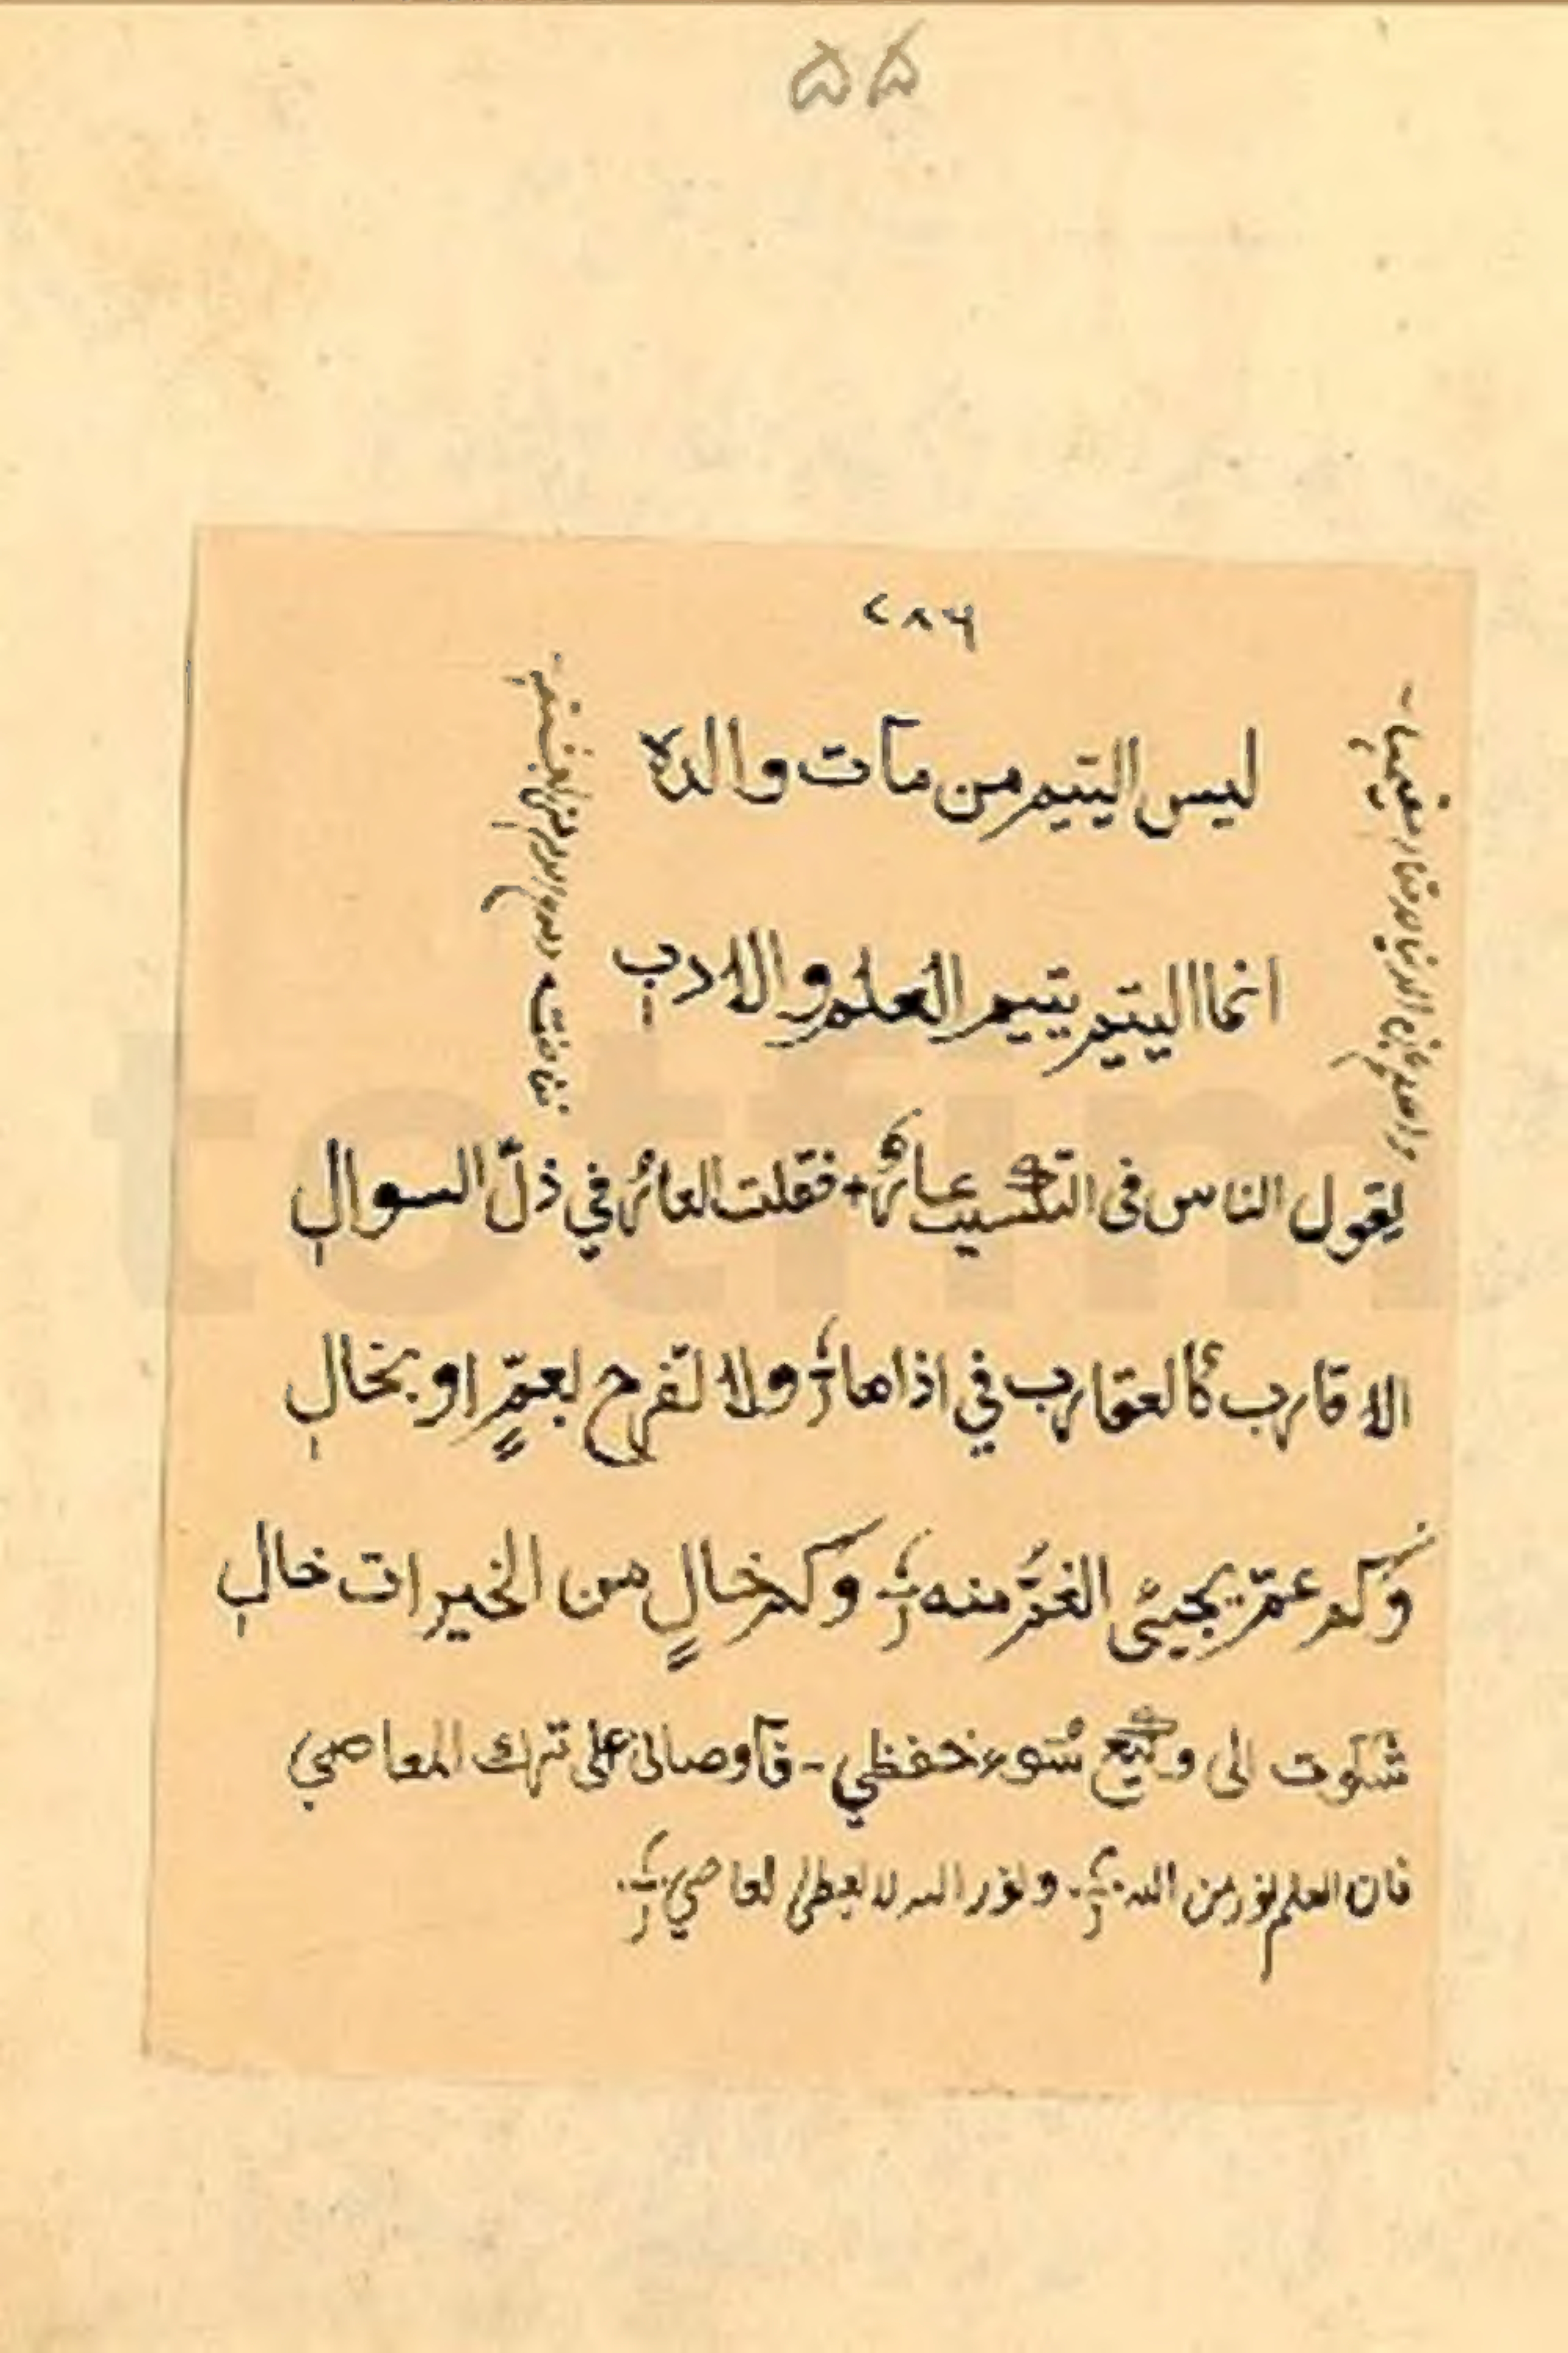 ۵۵
۷۸۶
ليس اليتيم من مات والده
انما اليتيم يتيم العلم والادب
يقول الناس فى التكسيب عارٌ + فقلت العارُ في ذلّ السوالِ
الاقارب كالعقارب في اذاها ولا تفرح بعمٍّ او بخالِ
وكم عمّ يجيئ الغمّ منه وكم خالٍ من الخيرات خالِ
شكوت الى وكيع سُوء حفظي - فآوصانى على ترك المعاصي
فان العلم نور من الله ونور الله لا يعطى لعاصي
totfim